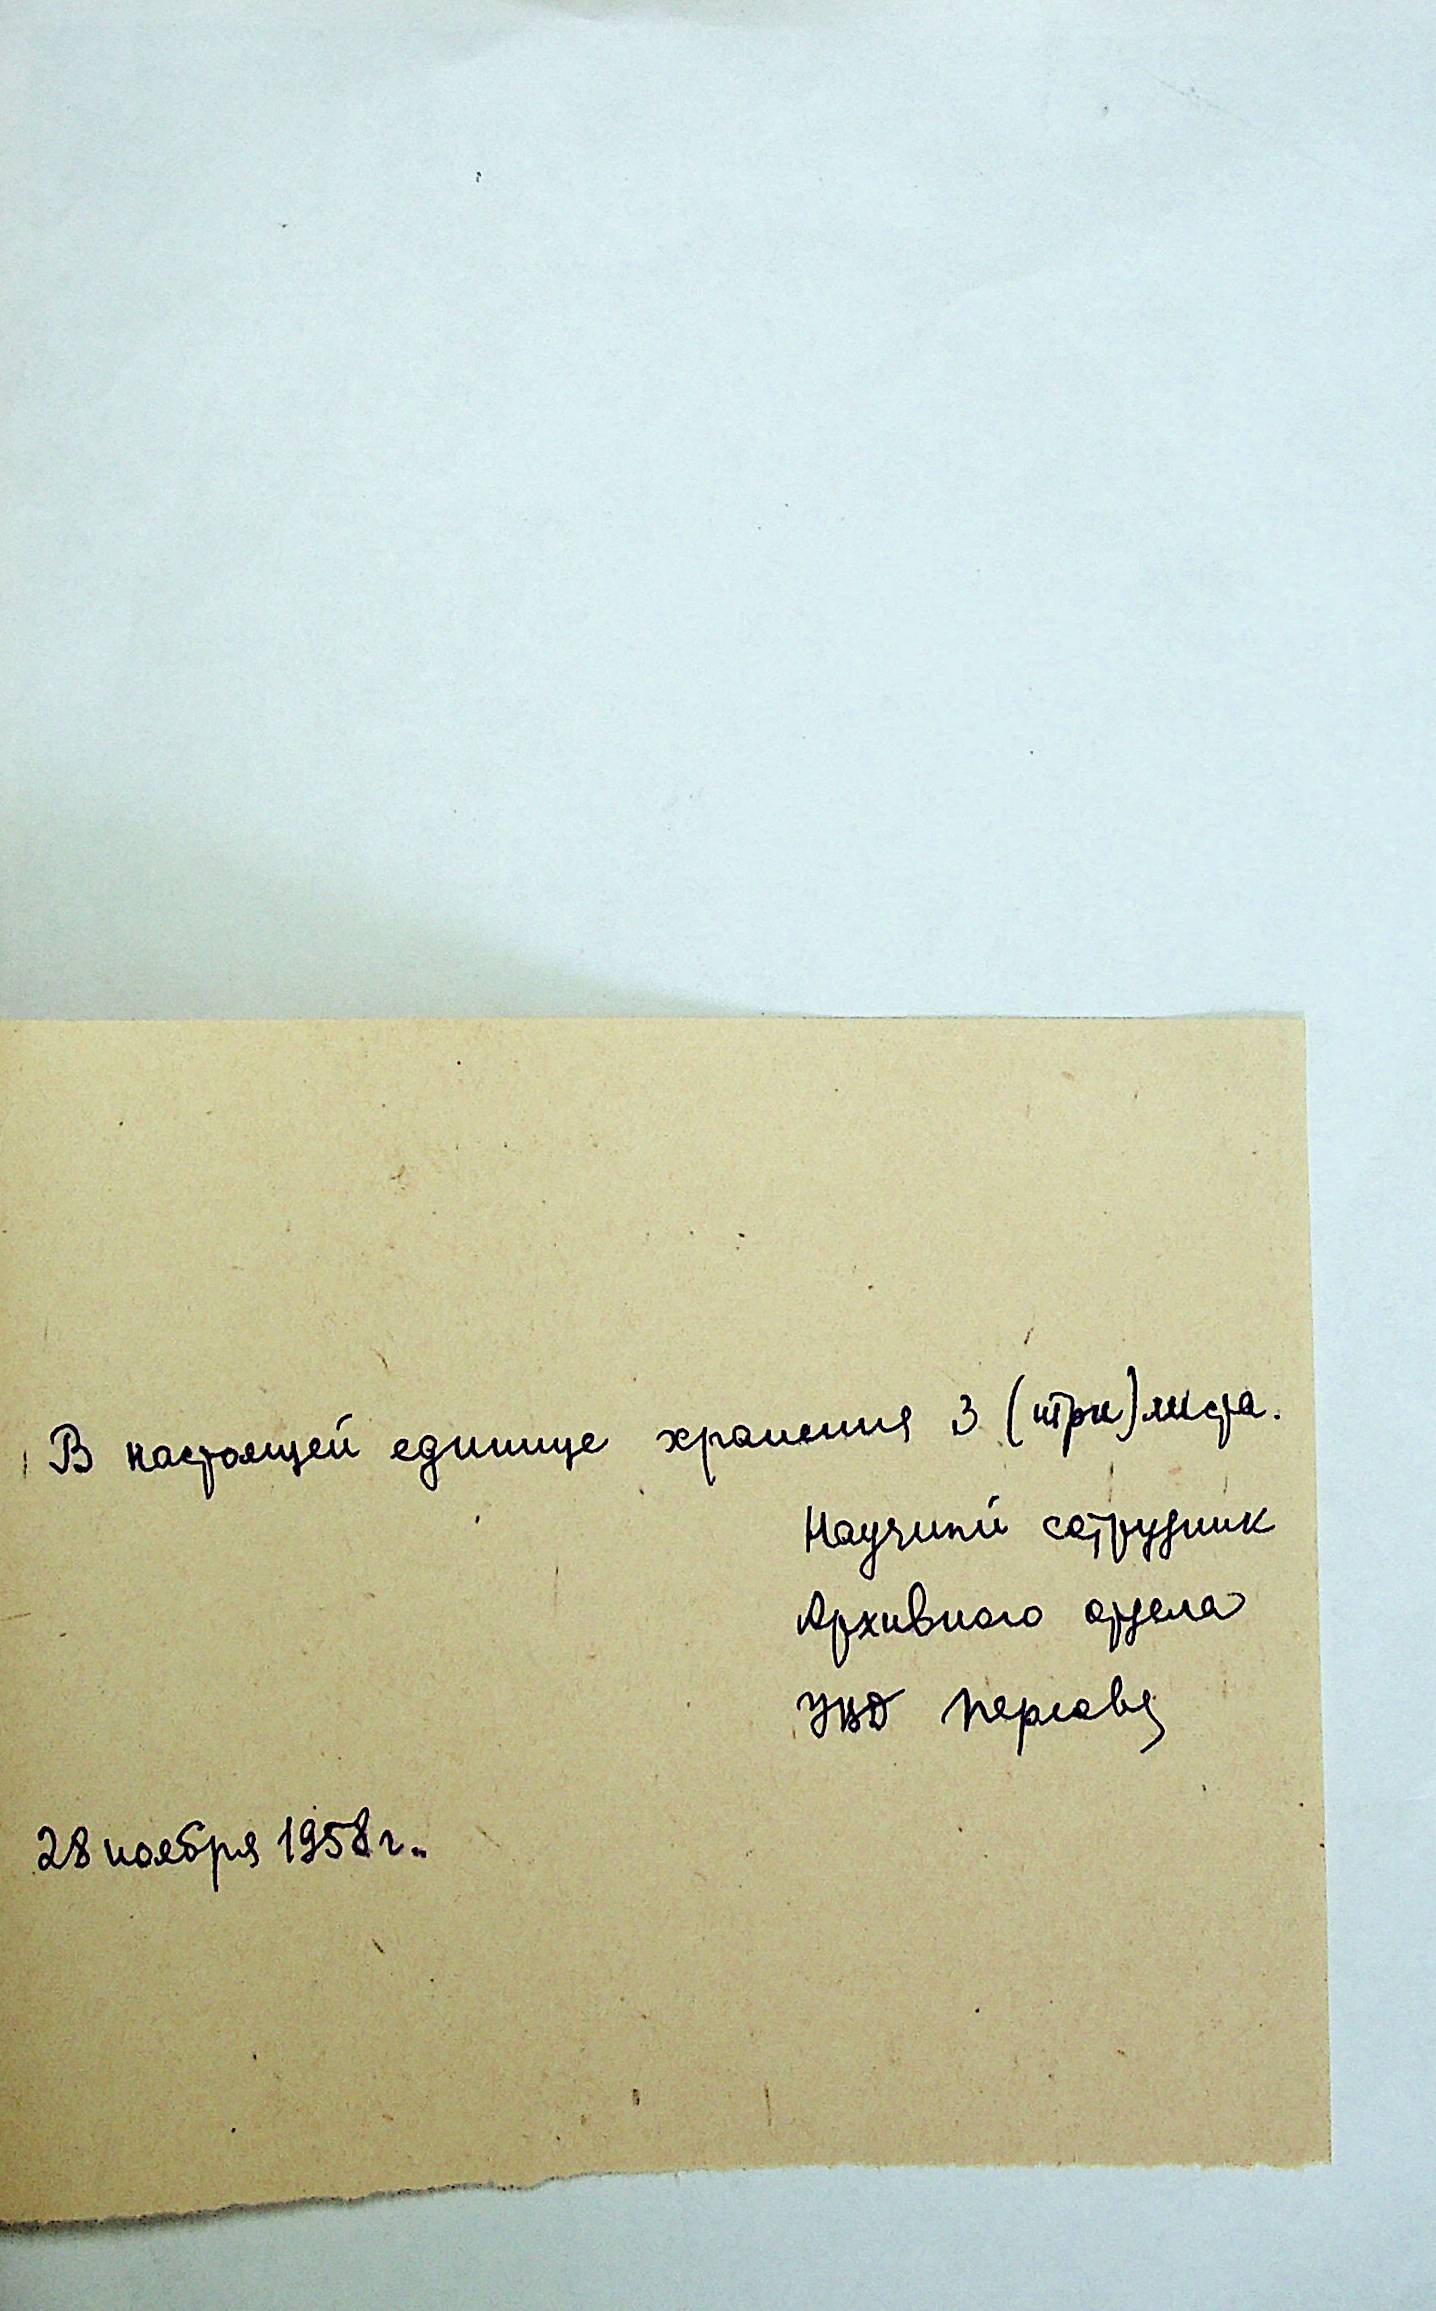 В настоящей единице хранения 3 (три) листа.
Научный сотрудник
Архивного отдела
УВД
28 ноября 1958 г.